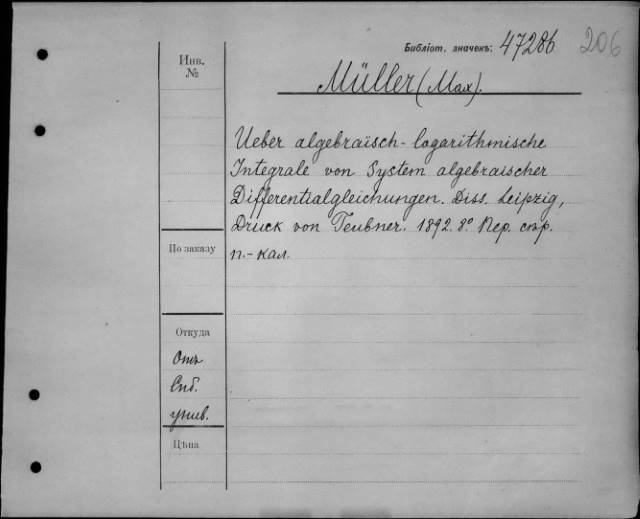 Библіот. значекъ: 47286 206
Инв. №
Müller (Max).
Ueber algebraïsch-logarithmische
Integrale von System algebraischer
Differentialgleichungen. Diss. Leipzig,
Druck von Teubner. 1892. 8º Пер. стр.
п.-кал.
По заказу
Откуда
Отъ
Спб.
унив.
Цѣна